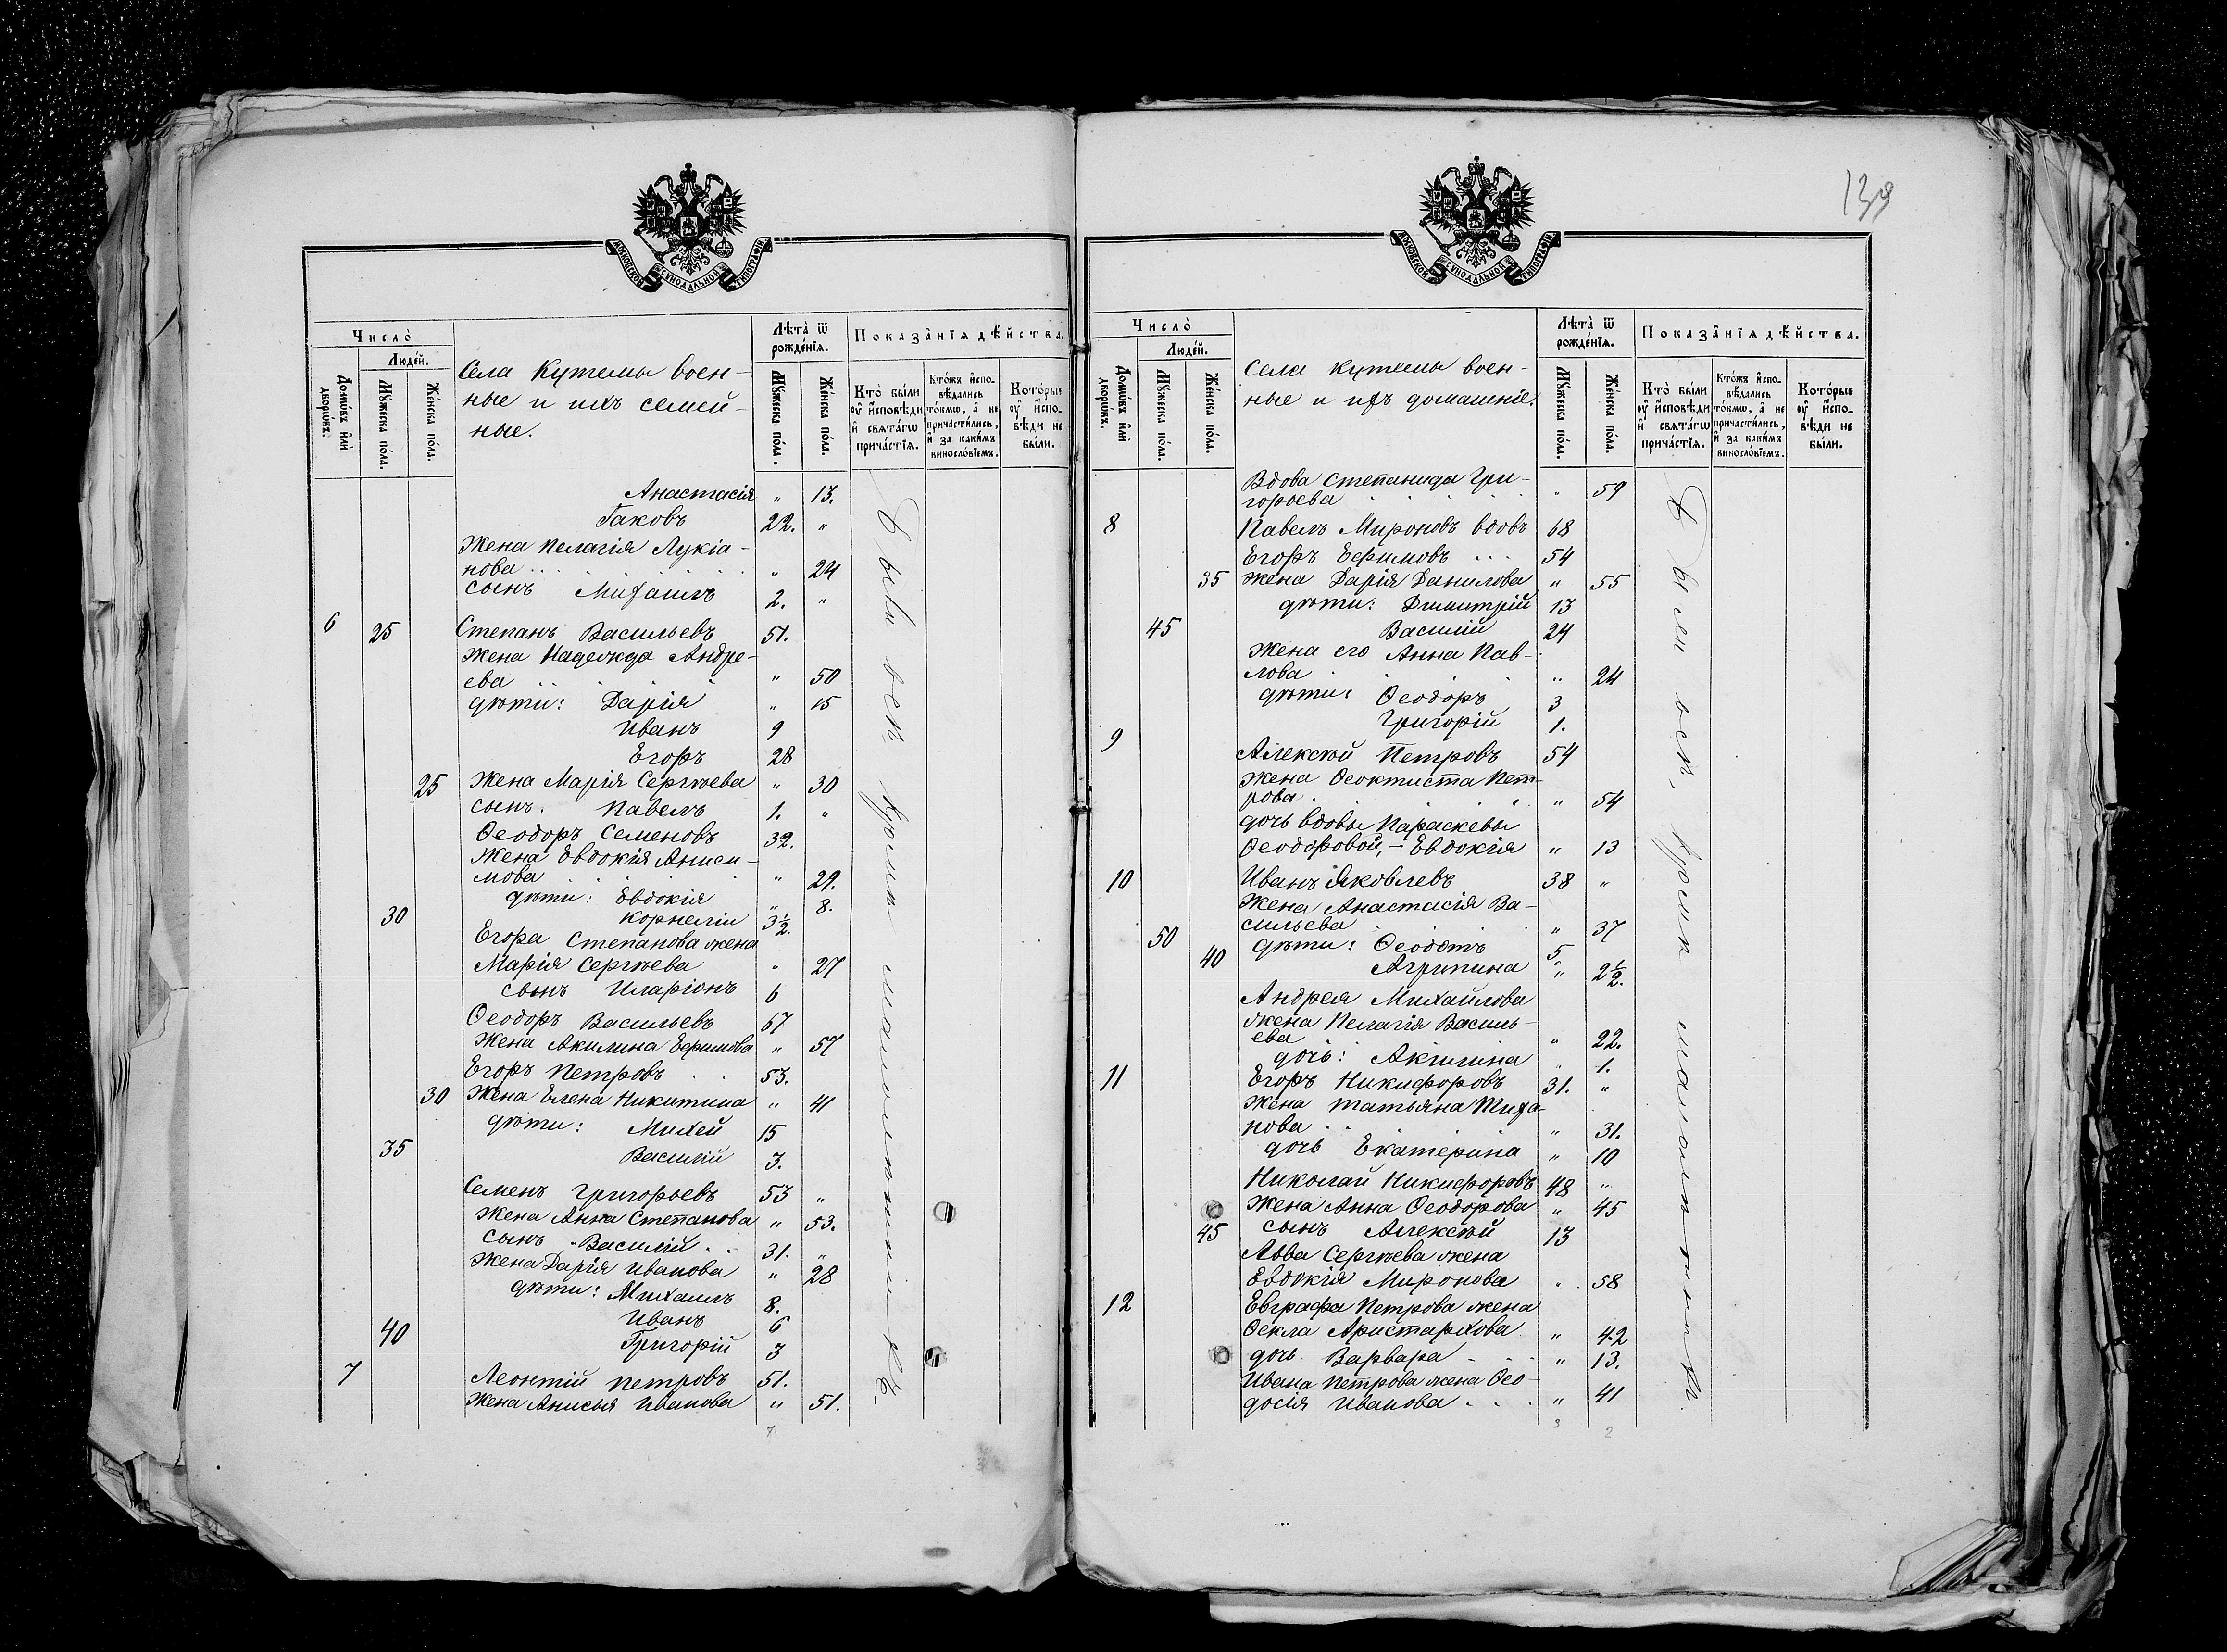 139
МОСКОВСКОЙ СѴНОДАЛЬНОЙ ТИПОГРАФІИ
Число̀
Люде́й.
Домѡ́въ и҆лѝ дворѡ́въ.
Мꙋ́жеска по́ла.
Же́нска по́ла.
Села Кутемы воен-
ные и ихъ семей-
ные.
Лѣта̀ ѿ рожде́нїѧ.
Мꙋ́жеска по́ла.
Же́нска по́ла.
Показа̂нїѧ дѣ́йства.
Кто̀ бы́ли ᲂу҆ и҆сповѣ́ди и҆ свѧта́гѡ прича́стїѧ.
Кто́жъ и҆спо-вѣ́дались то́кмѡ, а҆ не причасти́лись, и҆ за каки́мъ винособлі́емъ.
Кото́рые ᲂу҆ и҆спо-вѣ́ди не бы́ли.
Анастасія " 13.
Іаковъ 22. "
Жена Пелагія Лукіа-
нова " 24
сынъ Михаилъ 2. "
6 25 Степанъ Васильевъ 51.
Жена Надежда Андре-
ева " 50
дѣти: Дарія " 15
Иванъ 9
Егоръ 28
25 Жена Марія Сергѣева " 30
сынъ. Павелъ 1. "
Ѳеодоръ Семеновъ 32.
Жена Евдокія Аниси-
мова " 29.
дѣти: Евдокія " 8.
30 Корнелій 3½.
Егора Степанова жена
Марія Сергѣева " 27
сынъ Иларіонъ 6
Ѳеодоръ Васильевъ 67
Жена Акилина Ефимова " 57
Егоръ Петровъ 53.
30 Жена Елена Никитина " 41
дѣти: Михей 15
35 Василій 3.
Семенъ Григорьевъ 53 "
Жена Анна Степанова " 53.
сынъ - Василій 31. "
Жена Дарія Иванова " 28
дѣти: Михаилъ 8.
Иванъ 6
40 Григорій 3
7 Леонтій Петровъ 51.
Жена Анисья Иванова " 51.
7
МОСКОВСКОЙ СѴНОДАЛЬНОЙ ТИПОГРАФІИ
Число̀
Люде́й.
Домѡ́въ и҆лѝ дворѡ́въ.
Мꙋ́жеска по́ла.
Же́нска по́ла.
Села Кутемы воен-
ные и ихъ домашніе.
Лѣта̀ ѿ рожде́нїѧ.
Мꙋ́жеска по́ла.
Же́нска по́ла.
Показа̂нїѧ дѣ́йства.
Кто̀ бы́ли ᲂу҆ и҆сповѣ́ди и҆ свѧта́гѡ прича́стїѧ.
Кто́жъ и҆спо-вѣ́дались то́кмѡ, а҆ не причасти́лись, и҆ за каки́мъ винослові́емъ.
Кото́рые ᲂу҆ и҆спо-вѣ́ди не бы́ли.
Вдова Степанида Гри-
горьева " 59
8 Павелъ Мироновъ вдовъ 68
Егоръ Ефимовъ ... 54
35 Жена Дарія Данилова " 55
дѣти: Димитрій 13
45 Василій 24
Жена его Анна Пав-
лова " 24
дѣти: Ѳеодоръ 3
Григорій 1.
9 Алексѣй Петровъ 54
Жена Ѳеоктиста Пет-
рова " 54
дочь вдовы Параскевы
Ѳеодоровой, - Евдокія " 13
10 Иванъ Яковлевъ 38 "
Жена Анастасія Ва-
сильева " 37
50 дѣти: Ѳеодотъ 5.
40 Агрипина " 2½.
Андрея Михайлова
жена Пелагія Василь-
ева " 22.
дочь: Акилина " 1.
11 Егоръ Никифоровъ 31. "
Жена Татьяна Тиха-
нова " 31.
дочь Екатерина " 10
Николай Никифоровъ 48 "
Жена Анна Ѳеодорова " 45
45 сынъ Алексѣй 13
Льва Сергѣева жена
Евдокія Миронова " 58
12 Евграфа Петрова жена
Ѳекла Аристархова " 42
дочь Варвара " 13.
Ивана Петрова жена Ѳео-
досія Иванова " 41
3 2